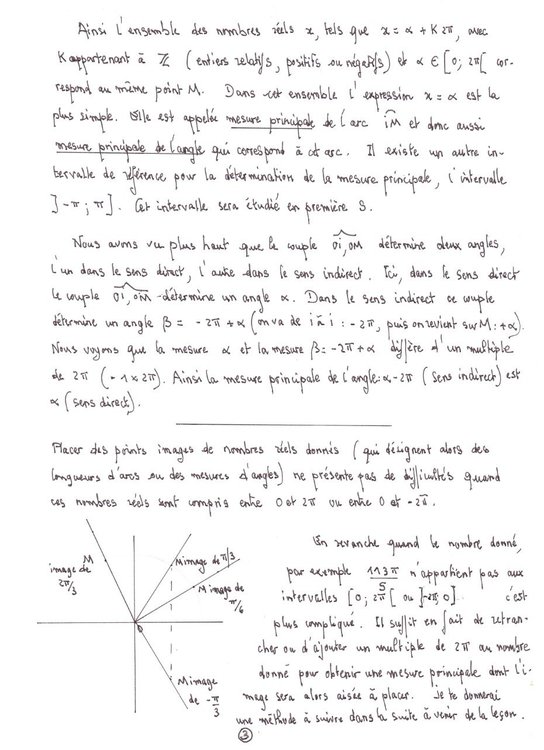 Ainsi l'ensemble des nombres réels x, tels que x = α + K 2π, avec
K appartenant à ℤ (entiers relatifs, positifs ou négatifs) et α ∈ [0; 2π[ cor-
respond au même point M. Dans cet ensemble l'expression x = α est la
plus simple. Elle est appelée mesure principale de l'arc iM et donc aussi
mesure principale de l'angle qui correspond à cet arc. Il existe un autre in-
tervalle de référence pour la détermination de la mesure principale, l'intervalle
]-π ; π]. Cet intervalle sera étudié en première S.
Nous avons vu plus haut que le couple Oi, OM détermine deux angles,
l'un dans le sens direct, l'autre dans le sens indirect. Ici, dans le sens direct
le couple Oi, OM détermine un angle α. Dans le sens indirect ce couple
détermine un angle β = -2π + α (on va de i à i : -2π, puis on revient sur M : +α).
Nous voyons que la mesure α et la mesure β = -2π + α diffère d'un multiple
de 2π (-1 × 2π). Ainsi la mesure principale de l'angle: α-2π (sens indirect) est
α (sens direct).
Placer des points images de nombres réels donnés (qui désignent alors des
longueurs d'arcs ou des mesures d'angles) ne présente pas de difficultés quand
ces nombres réels sont compris entre 0 et 2π ou entre 0 et -2π.
M
image de
2π/3
M image de π/3
M image de
π/6
O
M image
de -π/3
En revanche quand le nombre donné,
par exemple 113π/5 n'appartient pas aux
intervalles [0; 2π[ ou ]-2π; 0] c'est
plus compliqué. Il suffit en fait de retran-
cher ou d'ajouter un multiple de 2π au nombre
donné pour obtenir une mesure principale dont l'i-
mage sera alors aisée à placer. Je te donnerai
une méthode à suivre dans la suite à venir de la leçon.
3